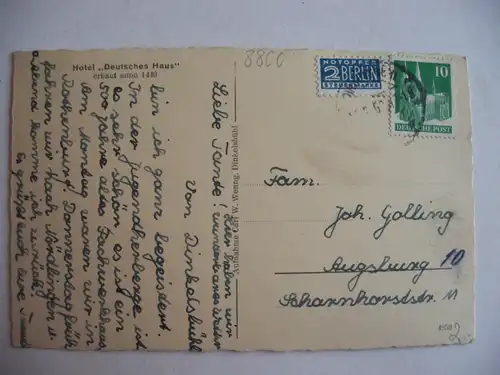 Hotel „Deutsches Haus"
erbaut anno 1440
8800
NOTOPFER
2 BERLIN
STEUERMARKE
10
DEUTSCHE POST
Von Dinkelsbühl
Liebe Tante! Hier haben wir
wunderbares Wetter
bin ich ganz begeistert.
In der Jugendherberge ist
es sehr schön, es ist ein
500 Jahre altes Fachwerkhaus
Am Montag waren wir in
Rothenburg! Donnerstag früh
fahren wir nach Nördlingen u.
abend komme ich zurück!
Es grüßt euch eure
Aufnahme und W. Wenng, Dinkelsbühl
Fam.
Joh. Golling
Augsburg 10
Scharnhorststr. 11